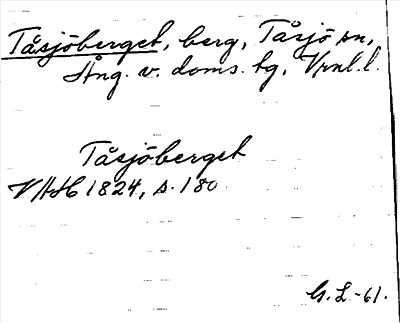 Tåsjöberget, berg, Tåsjö sn,
Ång. v. doms. tg, Vrnl. l.
Tåsjöberget
VHAH 1824, s. 180
G. L.-61.